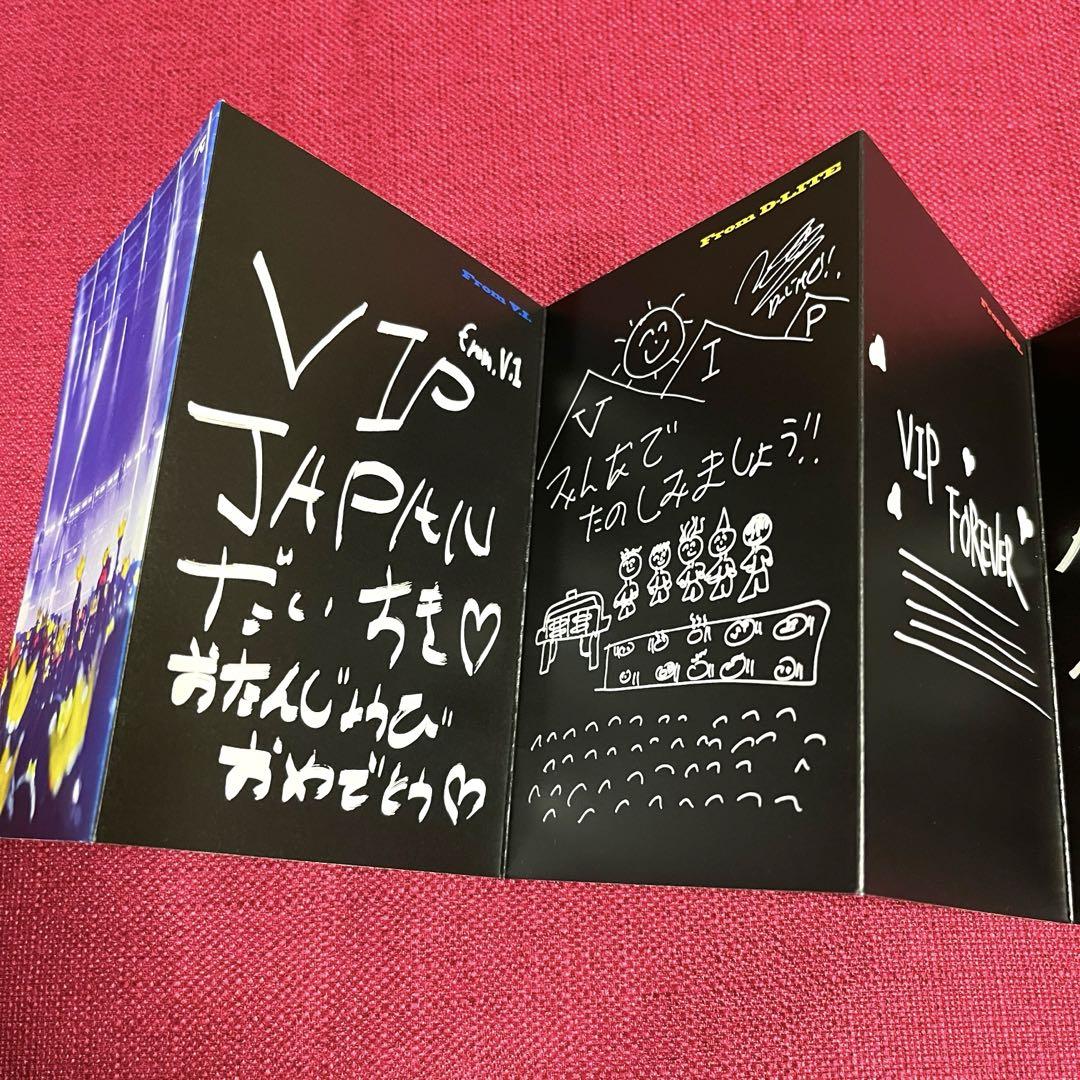 From V.I
VIP
from. V.I
JAPAN
だいちき♡
おたんじょうび
おめでとう♡
From D-LITE
D-LITE!!
V I P
みんなで
たのしみましょう!!
VIP
FOREVER